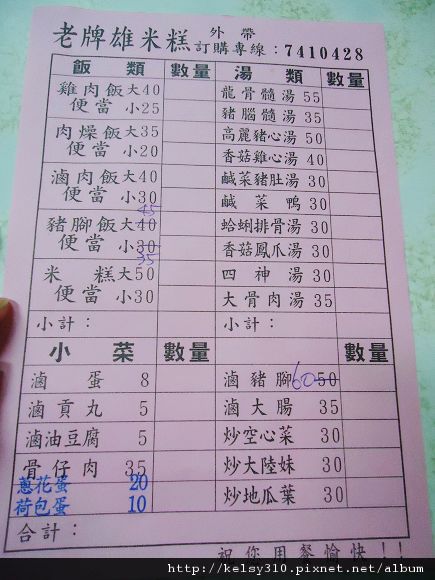 老牌雄米糕 外帶
訂購專線：7410428
飯類 數量 湯類 數量
雞肉飯大40
便當 小25
肉燥飯大35
便當 小20
滷肉飯大40
便當 小30
45
豬腳飯大40
便當 小30
35
米糕大50
便當 小30
小計：
龍骨髓湯 55
豬腦髓湯 35
高麗豬心湯 50
香菇雞心湯 40
鹹菜豬肚湯 30
鹹菜鴨 30
蛤蜊排骨湯 30
香菇鳳爪湯 30
四神湯 30
大骨肉湯 35
小計：
小菜 數量 數量
滷蛋 8
滷貢丸 5
滷油豆腐 5
骨仔肉 35
蔥花蛋 20
荷包蛋 10
滷豬腳 60 50
滷大腸 35
炒空心菜 30
炒大陸妹 30
炒地瓜葉 30
合計：
祝你用餐愉快!!
http://kelsy310.pixnet.net/album